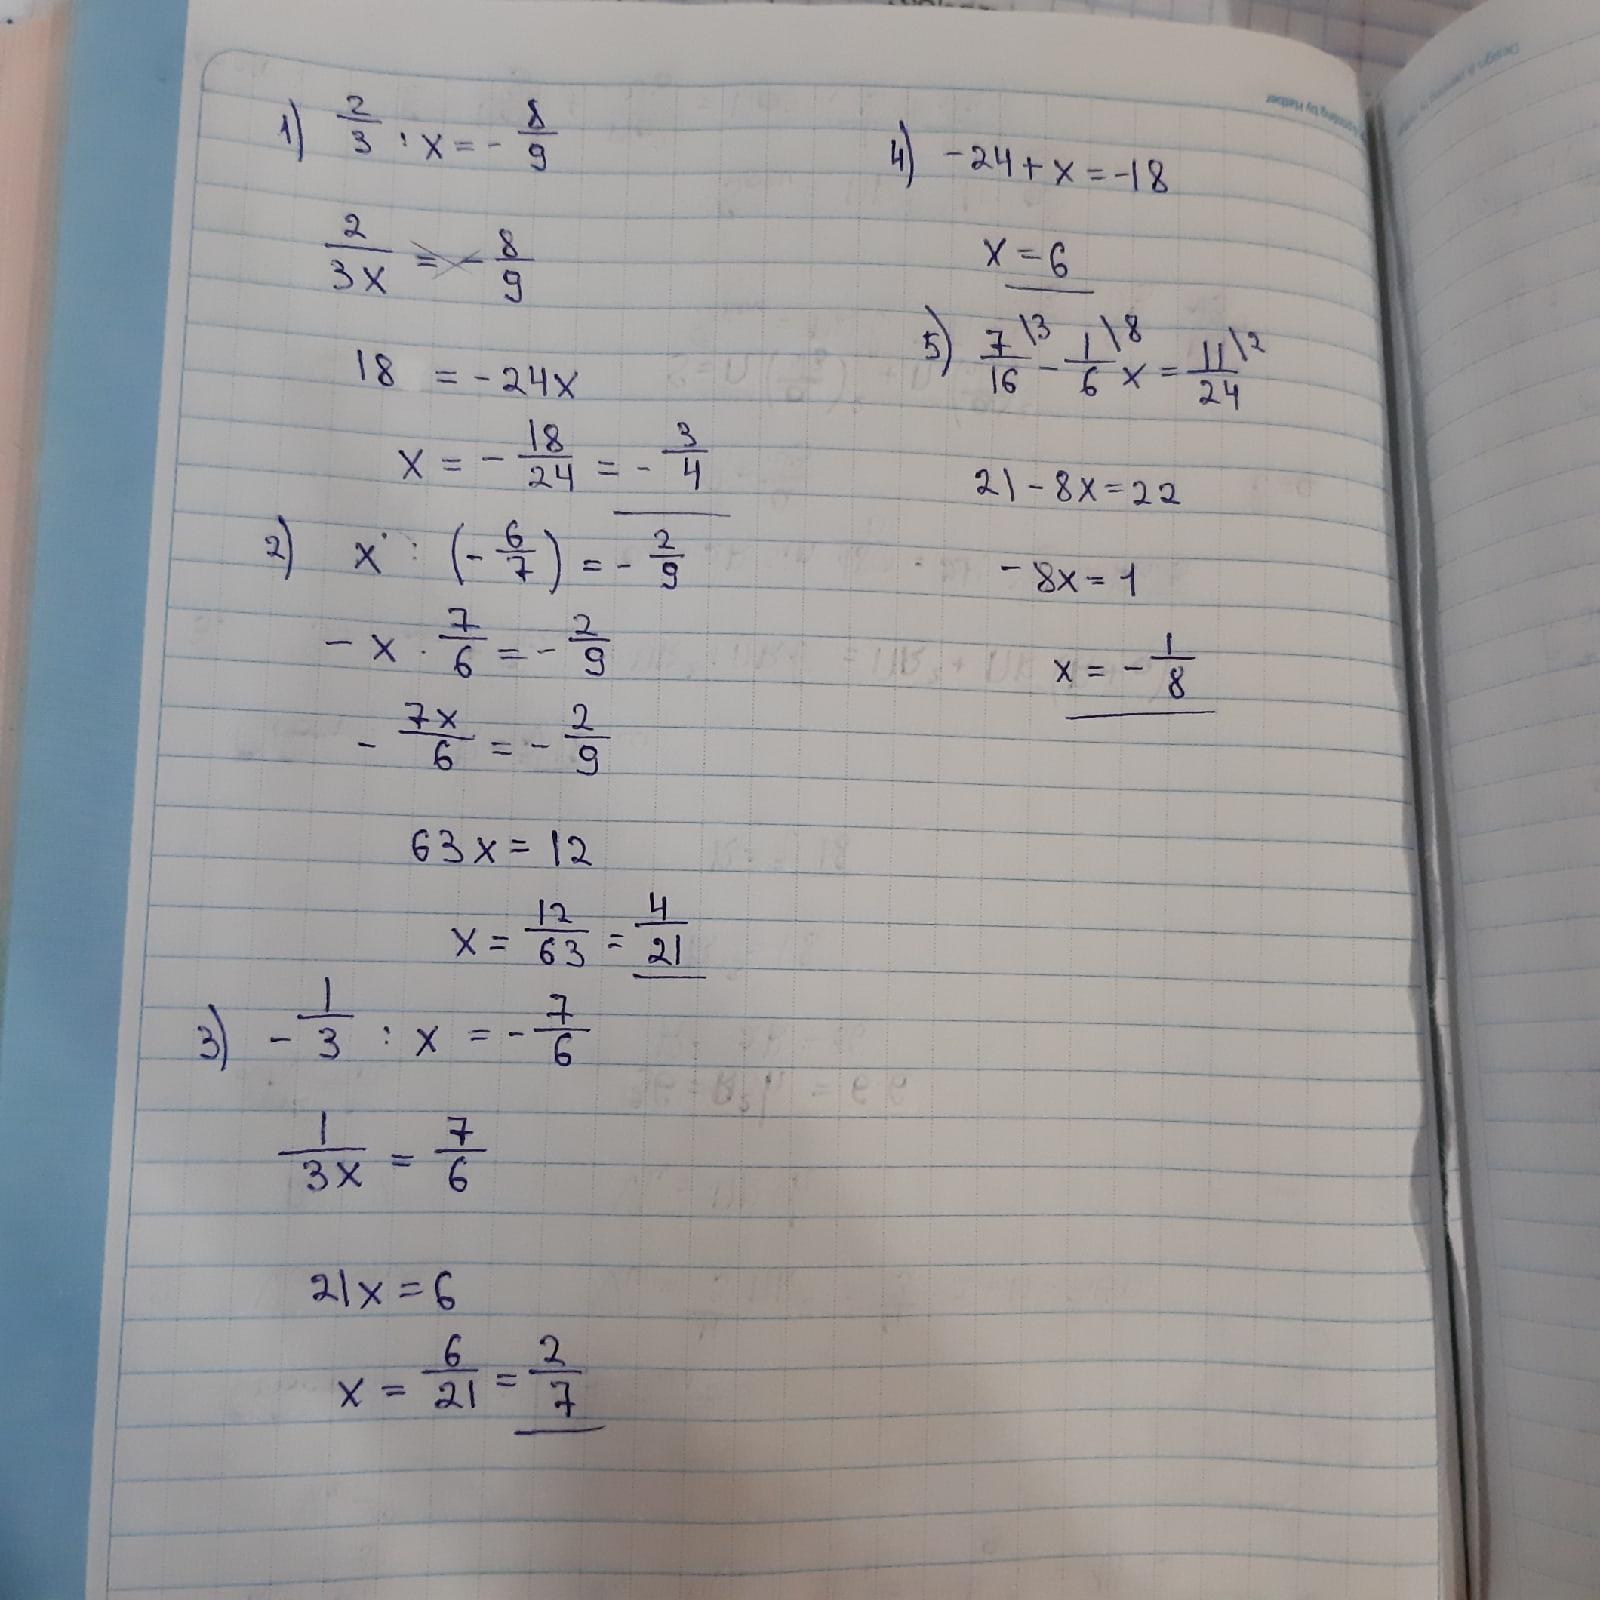 1) 2/3 : x = - 8/9
2/3x = - 8/9
18 = -24x
x = - 18/24 = - 3/4
2) x : (- 6/7) = - 2/9
- x · 7/6 = - 2/9
- 7x/6 = - 2/9
63x = 12
x = 12/63 = 4/21
3) - 1/3 : x = - 7/6
1/3x = 7/6
21x = 6
x = 6/21 = 2/7
4) -24 + x = -18
x = 6
5) 7/16 \3 - 1/6 \8 x = 11/24 \2
21 - 8x = 22
-8x = 1
x = - 1/8